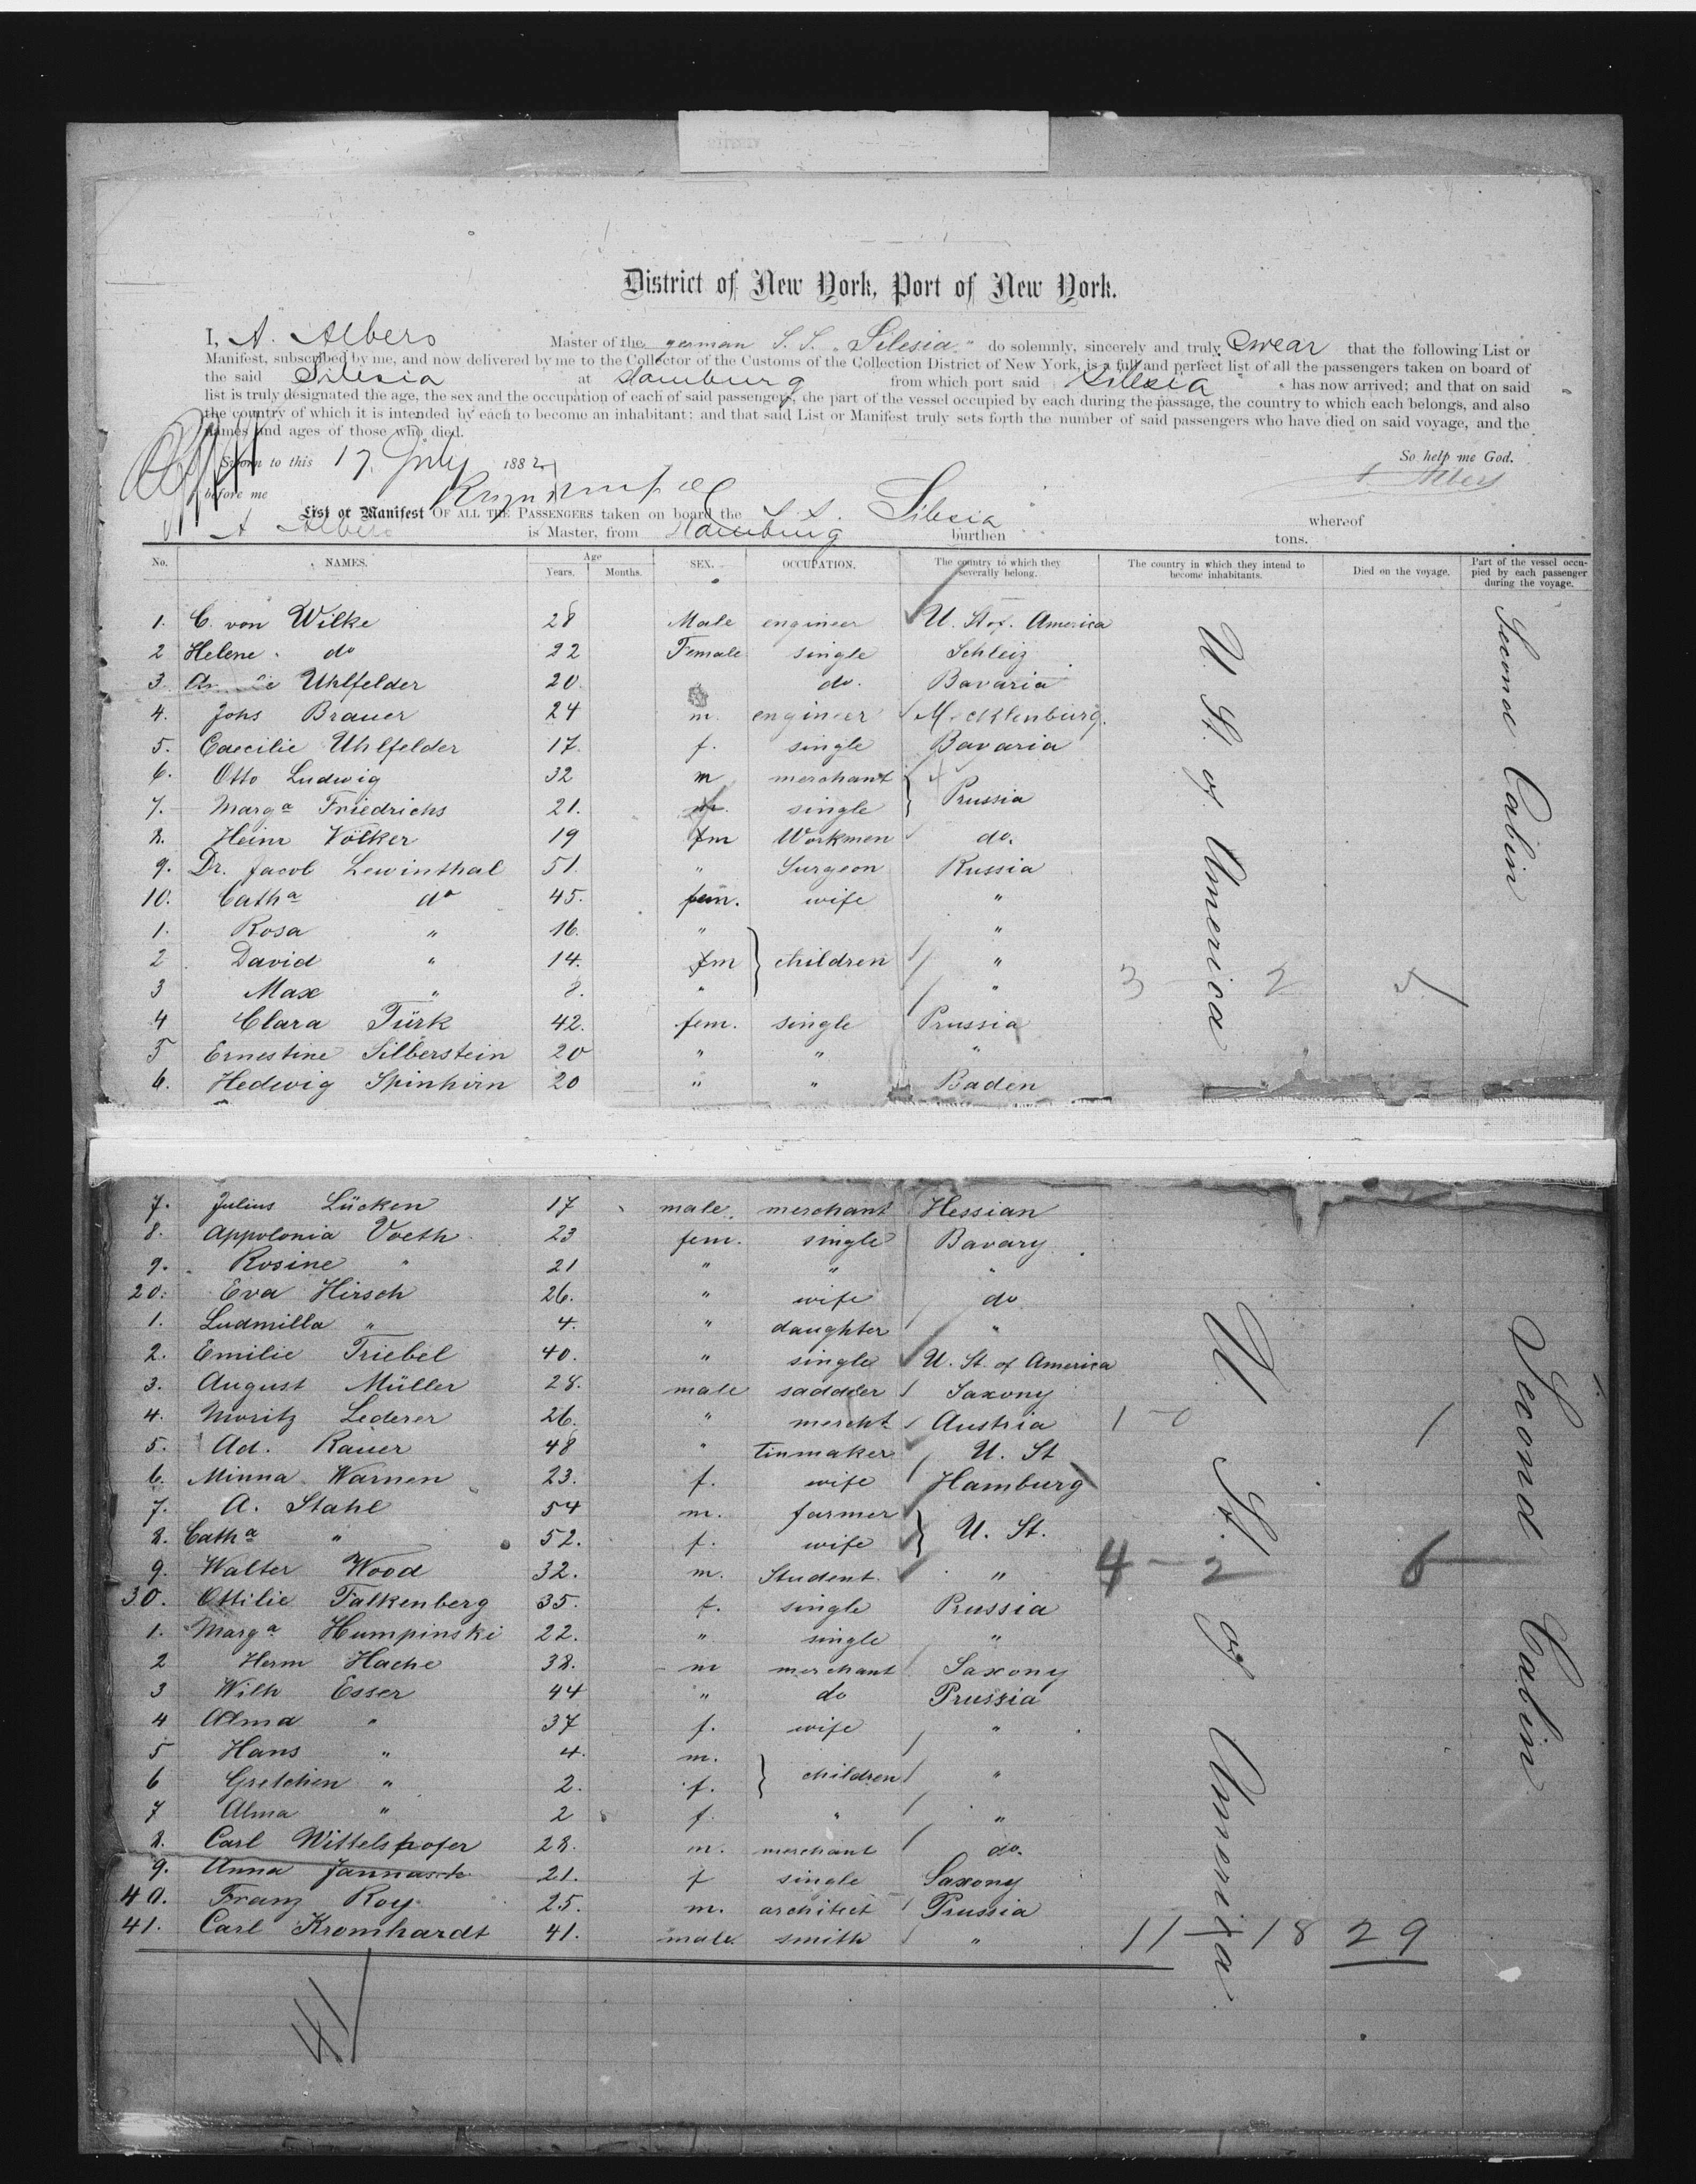 District of New York, Port of New York.
I, A. Albers Master of the german S. S. "Silesia" do solemnly, sincerely and truly swear that the following List or
Manifest, subscribed by me, and now delivered by me to the Collector of the Customs of the Collection District of New York, is a full and perfect list of all the passengers taken on board of
the said Silesia at Hamburg from which port said Silesia has now arrived; and that on said
list is truly designated the age, the sex and the occupation of each of said passengers, the part of the vessel occupied by each during the passage, the country to which each belongs, and also
the country of which it is intended by each to become an inhabitant: and that said List or Manifest truly sets forth the number of said passengers who have died on said voyage, and the
names and ages of those who died.
Sworn to this 17. July 1882 So help me God.
before me A Albers
List or Manifest OF ALL THE PASSENGERS taken on board the S. S. Silesia whereof
A Albers is Master, from Hamburg burthen tons.
No. NAMES. Age Years. Months. SEX. OCCUPATION. The country to which they severally belong. The country in which they intend to become inhabitants. Died on the voyage. Part of the vessel occupied by each passenger during the voyage.
1. C. von Wilke 28 Male engineer U. St of. America
2 Helene do 22 Female single Schleiz
3. Uhlfelder 20. do. Bavaria
4. Johs Brauer 24 m. engineer Mecklenburg.
5. Caecilie Uhlfelder 17. f. single Bavaria
6. Otto Ludwig 32 m merchant
7. Marga Friedrichs 21. single Prussia
8. Heinr Völker 19 m Workmen do.
9. Dr. Jacob Lewinthal 51. " Surgeon Russia
10. Catha do 45. fem. wife "
1. Rosa " 16. " "
2 David " 14. m children "
3 Max " 8. " "
4 Clara Türk 42. fem. single Prussia
5 Ernestine Silberstein 20 " " "
6. Hedwig Spinhirn 20 " " Baden
U. St. of America
Second Cabin
3 2 5
7. Julius Lücken 17 male. merchant Hessian
8. Appolonia Voeth 23 fem. single Bavary
9. Rosine " 21 " " "
20. Eva Hirsch 26. " wife do
1. Ludmilla " 4. " daughter "
2. Emilie Triebel 40. " single U. St. of America
3. August Müller 28. male saddler Saxony
4. Moritz Lederer 26. " mercht Austria 1 - 0 1
5. Ad. Rauer 48 " tinmaker U. St
6. Minna Warnen 23. f. wife Hamburg
7. A. Stahl 54 m. farmer
8. Catha " 52. f. wife U. St.
9. Walter Wood 32. m. Student. " 4 - 2 6
30. Ottilie Falkenberg 35. f. single Russia
1. Marga Humpinski 22. " single "
2 Herm Hache 38. m merchant Saxony
3 Wilh Esser 44 " do Prussia
4 Alma " 37 f. wife "
5 Hans " 4. m.
6 Gretchen " 2. f. children "
7 Alma " 2 f. " "
8. Carl Wittelshofer 28. m. merchant do.
9. Anna Jannasch 21. f single Saxony
40. Franz Roy 25. m. architect Prussia
41. Carl Kromhardt 41. male smith " 11 - 18 29
U. St. of America
Second Cabin
41